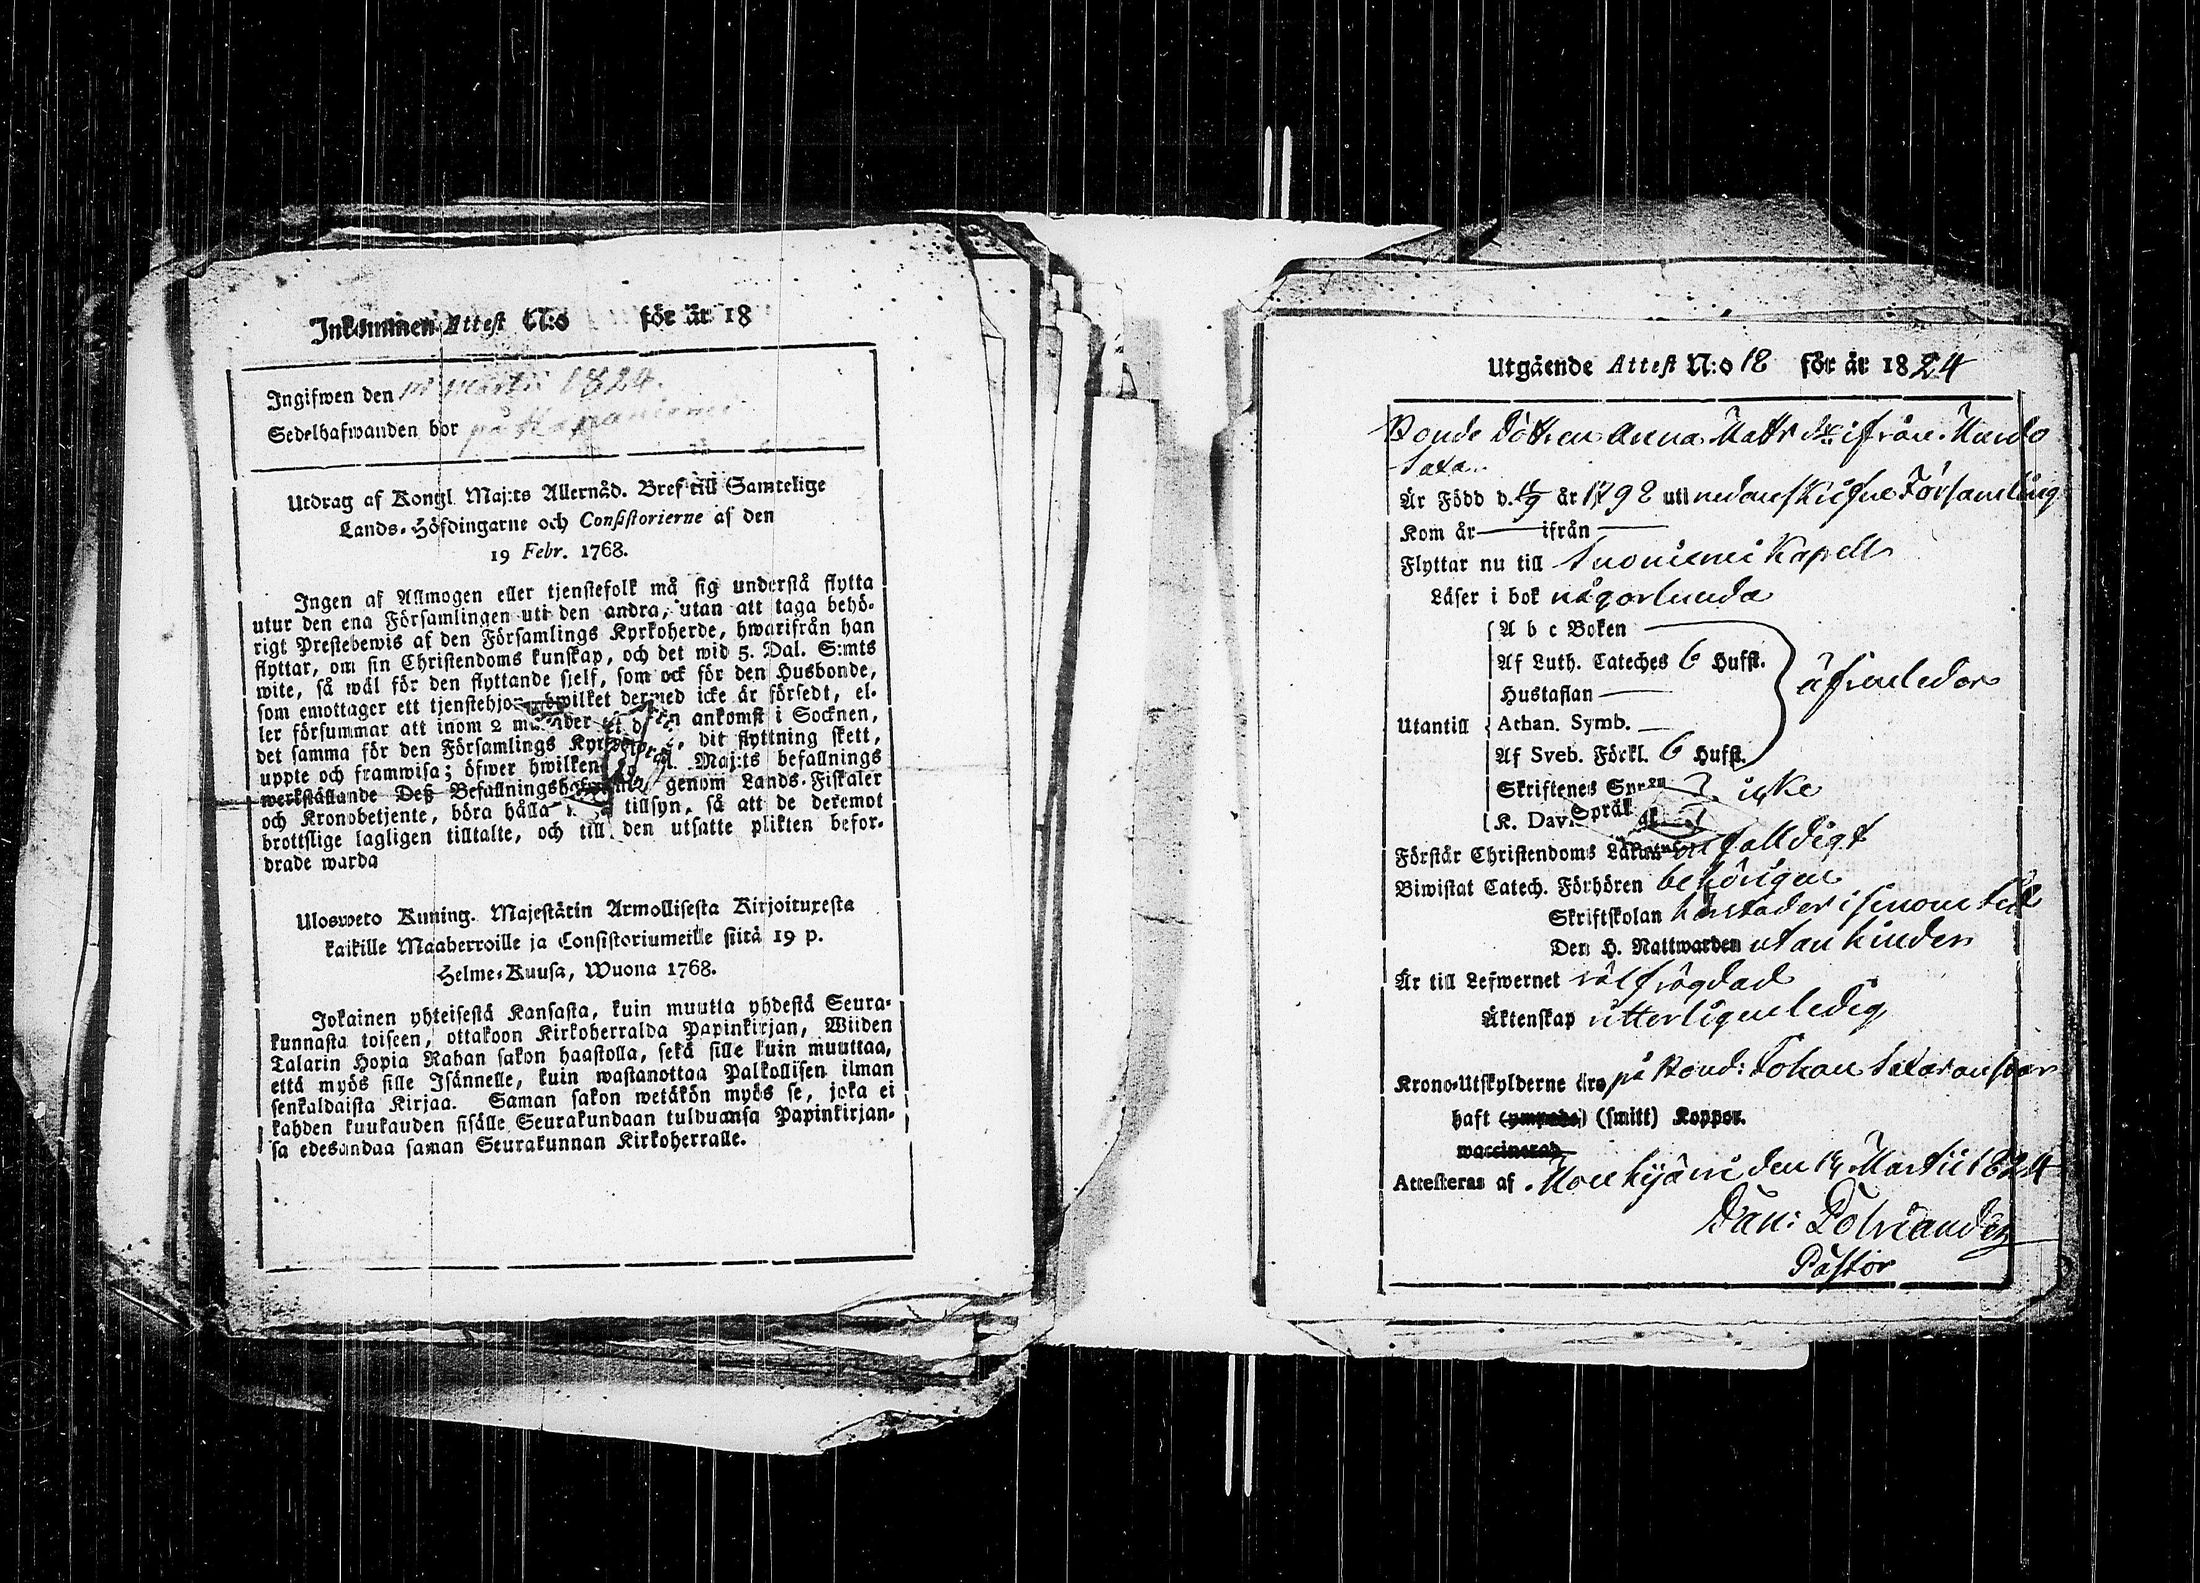 Inkommen Attest N:o för år 18
Ingifwen den Martii 1824.
Sedelhafwanden bor på
Utdrag af Kongl. Maj:ts Allernåd. Bref till Samtelige
Lands-Höfdingarne och Consistorierne af den
19 Febr. 1768.
Ingen af Allmogen eller tjenstefolk må sig understå flytta
utur den ena Församlingen uti den andra, utan att taga behö-
rigt Prestebewis af den Församlings Kyrkoherde, hwarifrån han
flyttar, om sin Christendoms kunskap, och det wid 5. Dal. S:mts
wite, så wäl för den flyttande sielf, som ock för den Husbonde,
som emottager ett tjenstehjon hwilket dermed icke är försedt, el-
ler försummar att inom 2 månader ankomst i Socknen,
det samma för den Församlings dit flyttning skett,
uppte och framwisa; öfwer hwilken Maj:ts befallnings
werkställande Deß Befallningshafwande genom Lands-Fiskaler
och Kronobetjente, böra hålla tillsyn, så att de deremot
brottslige lagligen tilltalte, och till den utsatte plikten befor-
drade warda
Ulosweto Kuning. Majestätin Armollisesta Kirjoituxesta
kaikille Maaherroille ja Consistoriumeille siitä 19 p.
Helme-Kuusa, Wuona 1768.
Jokainen yhteisestä Kansasta, kuin muutta yhdestä Seura-
kunnasta toiseen, ottakoon Kirkoherralda Papinkirjan, Wiiden
Talarin Hopia Rahan sakon haastolla, sekä sille kuin muuttaa,
että myös sille Isännelle, kuin wastanottaa Palkollisen ilman
senkaldaista Kirjaa. Saman sakon wetäkön myös se, joka ei
kahden kuukauden sisälle Seurakundaan tulduansa Papinkirjan-
sa edesandaa saman Seurakunnan Kirkoherralle.
Utgående Attest N:o 18 för år 1824
Bonde Dottren Anna Matts dr ifrån
Saxa
Är Född d. år 1798 uti nedanskrifne Församling
Kom år — ifrån —
Flyttar nu till Suoniemi Kapell
Läser i bok någorlunda
A b c Boken
Af Luth. Cateches 6 Hufst.
Hustaflan —
äfvenledes
Utantill Athan. Symb. —
Af Sveb. Förkl. 6 Hufst.
Skriftenes Språk icke
K. Dav.
Förstår Christendoms Läran enfaldigt
Biwistat Catech. Förhören behörigen
Skriftskolan i sinom tid
Den H. Nattwarden utan hinder
Är till Lefwernet välfrägdad
Äktenskap ledig
Krono-Utskylderne äro på Bond: Johan Saxas ansvar
haft (ympade) (smitt) Koppor.
waccinerad
Attesteras af Mouhijärvi den 14 Martii 1824
Dan: Polviander
Pastor